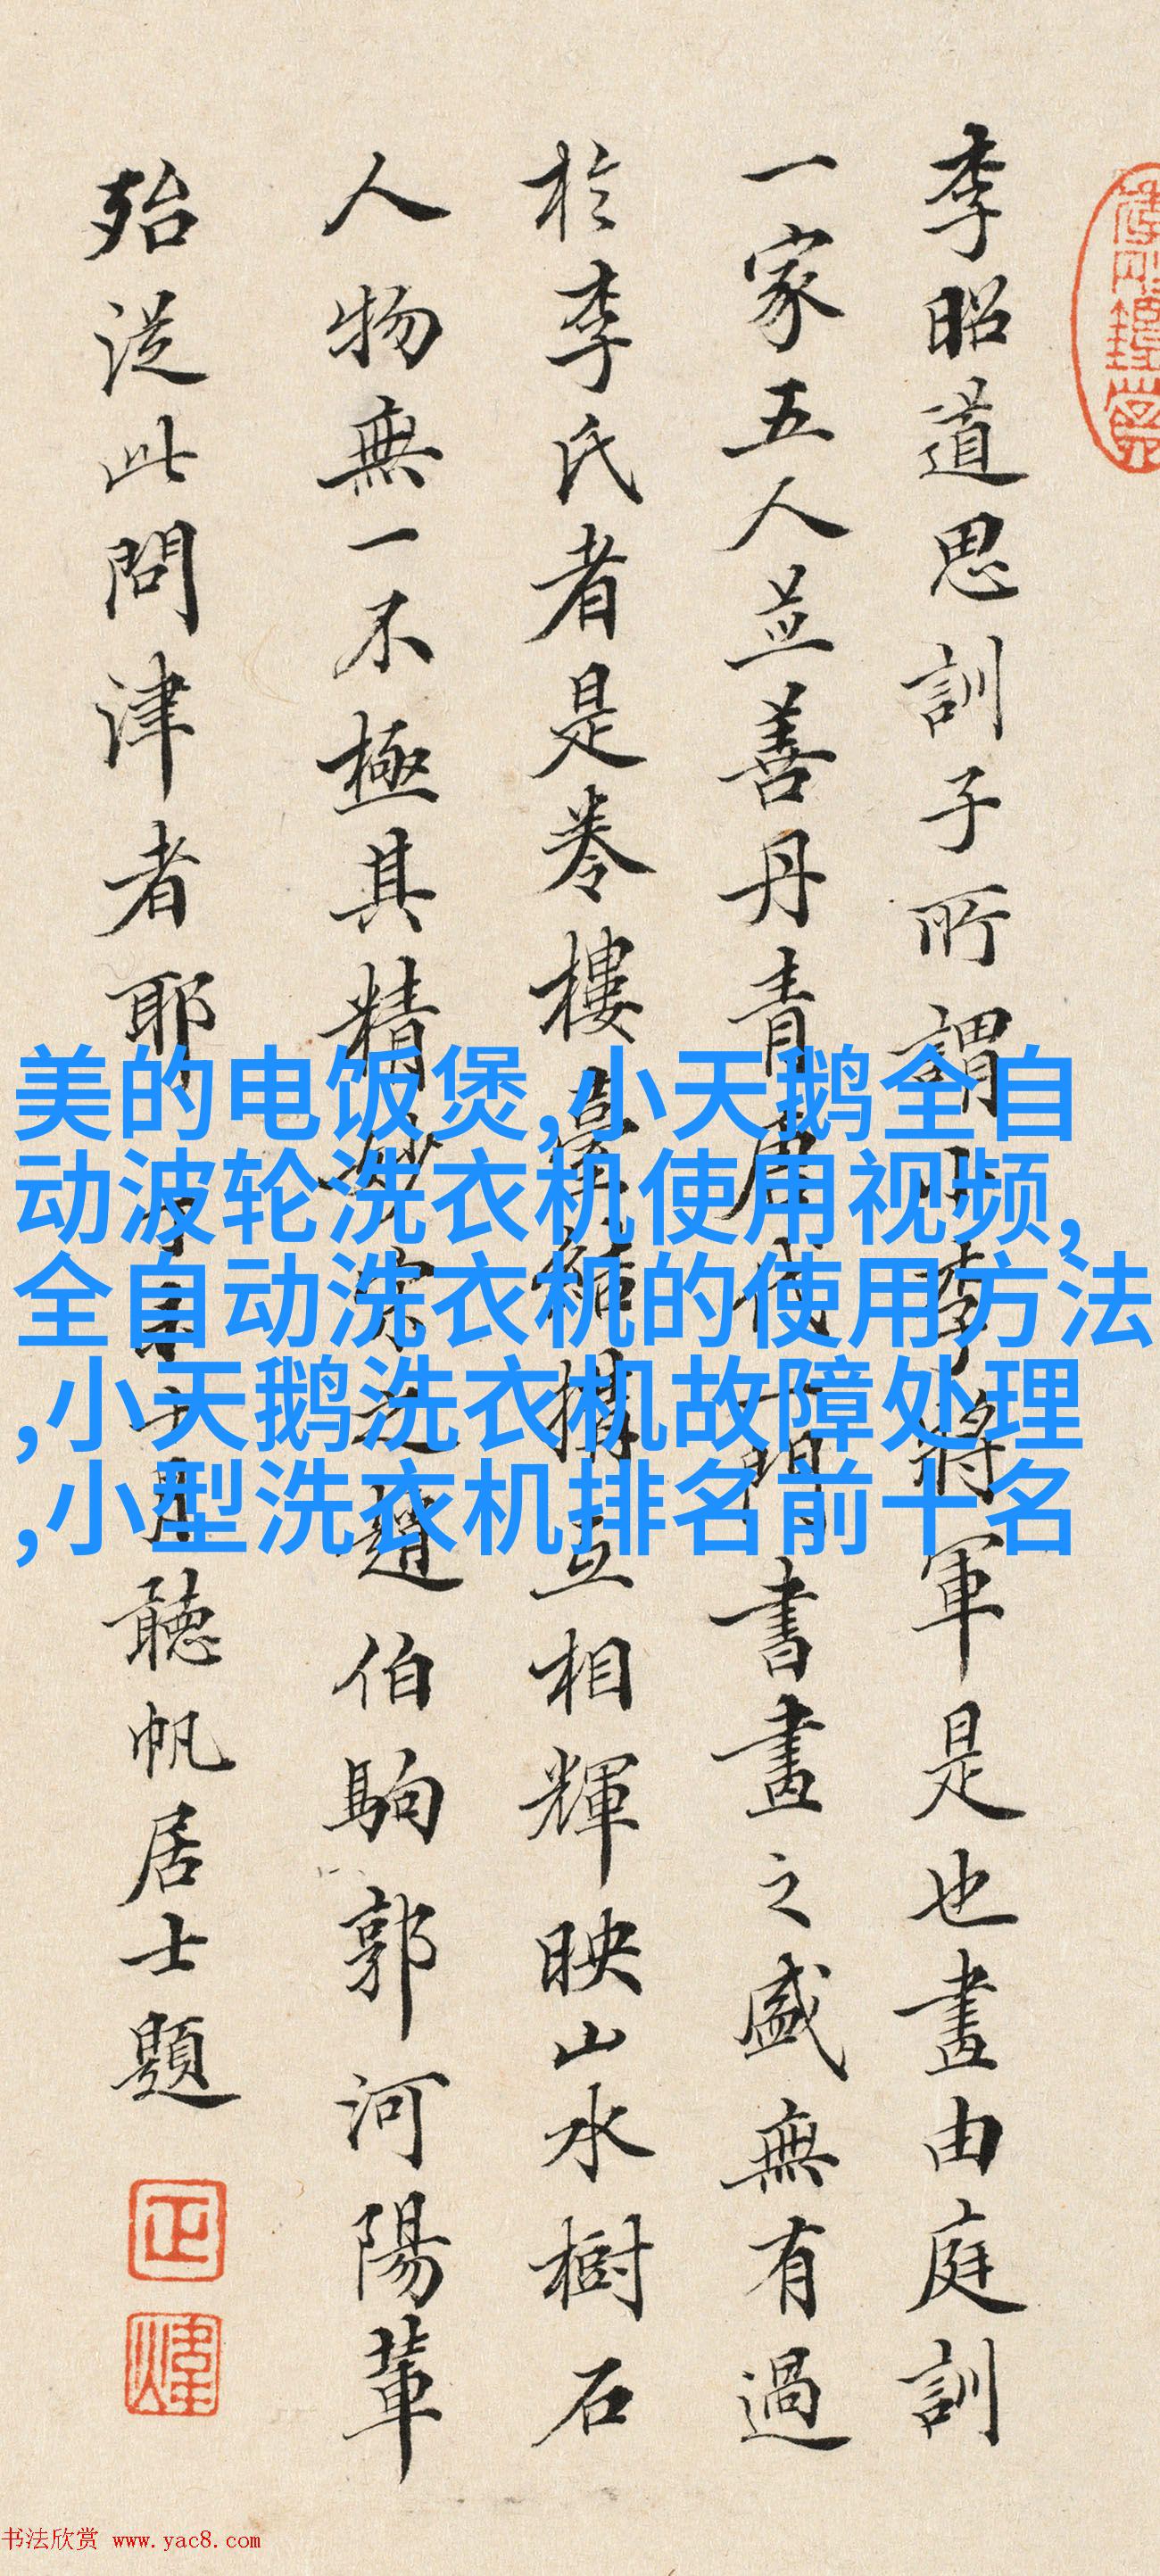 李昭道思訓子所謂小李將軍是也畫由庭訓
一家五人並善丹青唐代一門書畫之盛無有過
於李氏者是卷樓臺結構互相輝映山水樹石
人物無一不極其精妙宋之趙伯駒郭河陽輩
殆從此問津者耶
聽帆居士題
美的电饭煲,小天鹅全自
动波轮洗衣机使用视频,
全自动洗衣机的使用方法
,小天鹅洗衣机故障处理
,小型洗衣机排名前十名
书法欣赏 www.yac8.com